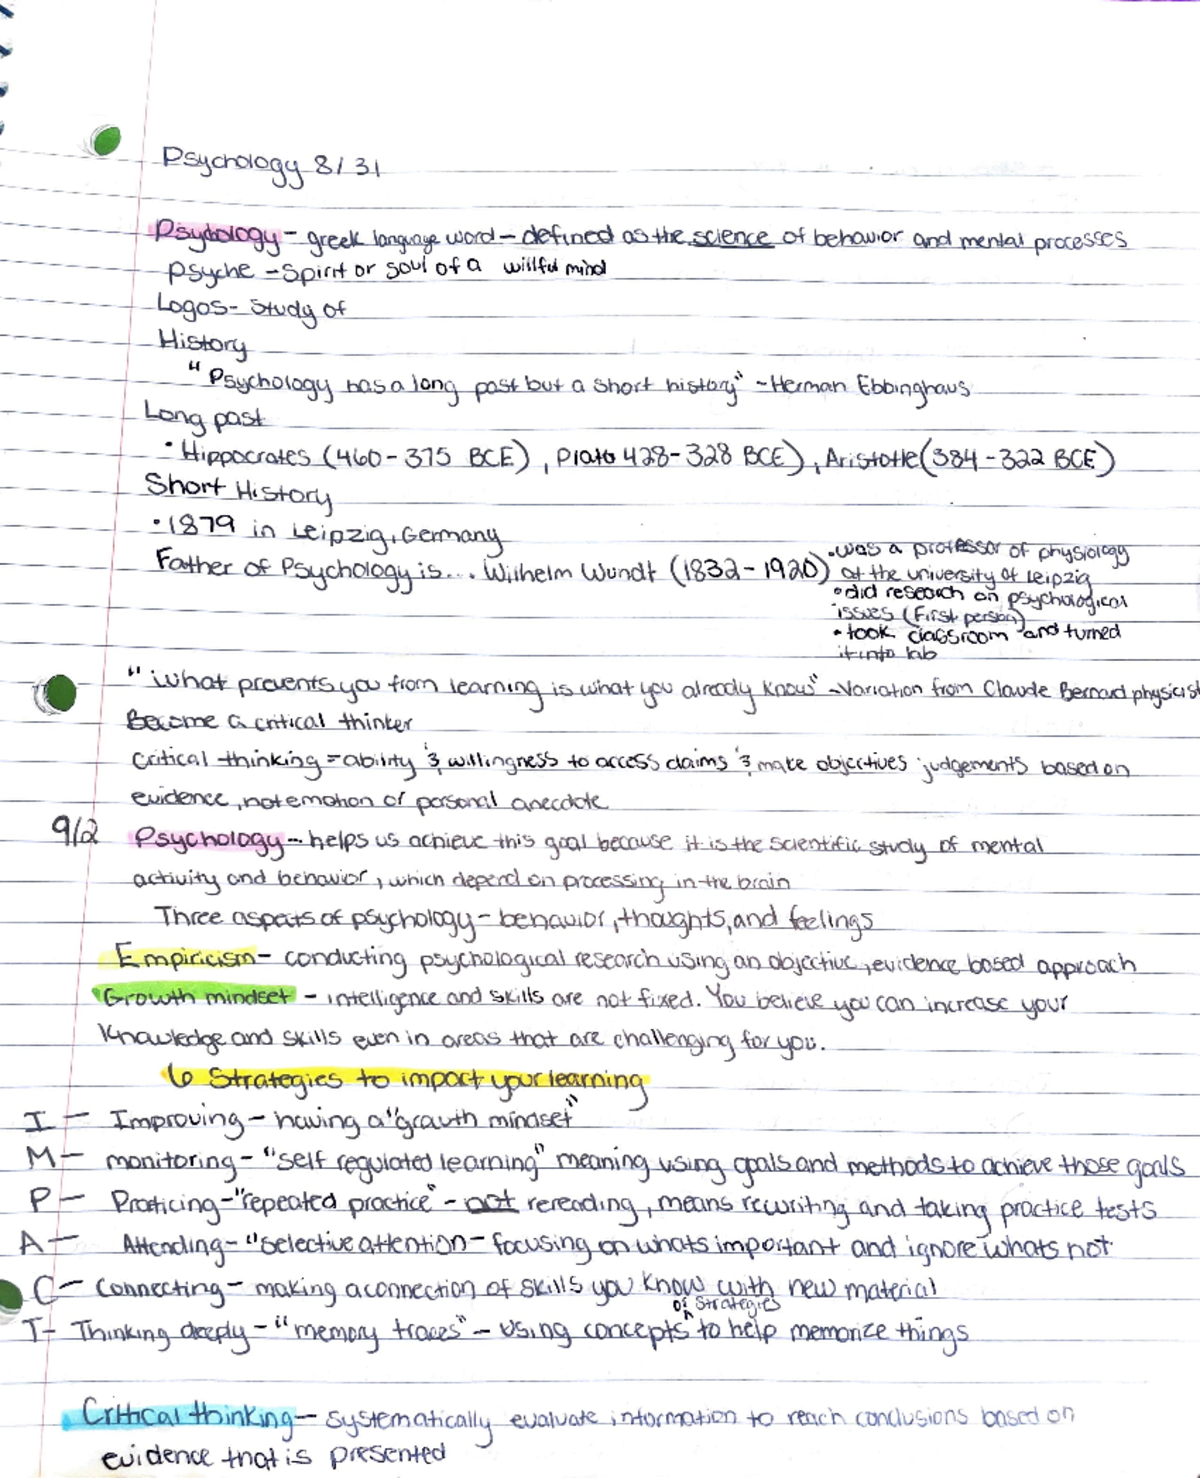 Psychology 8/31
Psychology - greek language word - defined as the science of behavior and mental processes
psyche - Spirit or soul of a willful mind
Logos - Study of
History
"Psychology has a long past but a short history" - Herman Ebbinghaus
Long past
• Hippocrates (460-375 BCE), Plato 428-328 BCE), Aristotle (384-322 BCE)
Short History
• 1879 in Leipzig, Germany
Father of Psychology is... Wilhelm Wundt (1832-1920)
• was a professor of physiology
at the university of Leipzig
• did research on psychological
issues (First person)
• took classroom and turned
it into lab
"What prevents you from learning is what you already know" - Variation from Claude Bernard physicist
Become a critical thinker
critical thinking = ability & willingness to access claims & make objectives judgements based on
evidence, not emotion or personal anecdote
9/2 Psychology - helps us achieve this goal because it is the scientific study of mental
activity and behavior, which depend on processing in the brain
Three aspects of psychology - behavior, thoughts, and feelings
Empiricism - conducting psychological research using an objective, evidence based approach
Growth mindset - intelligence and skills are not fixed. You believe you can increase your
Knowledge and skills even in areas that are challenging for you.
↳ Strategies to impact your learning
I - Improving - having a "growth mindset"
M - monitoring - "self regulated learning" meaning using goals and methods to achieve those goals
P - Practicing - "repeated practice" - not rereading, means rewriting and taking practice tests
A - Attending - "selective attention - focusing on whats important and ignore whats not
C - Connecting - making a connection of skills you know with new material
T - Thinking deeply - "memory traces" - using concepts or strategies to help memorize things
Critical thinking - systematically evaluate information to reach conclusions based on
evidence that is presented